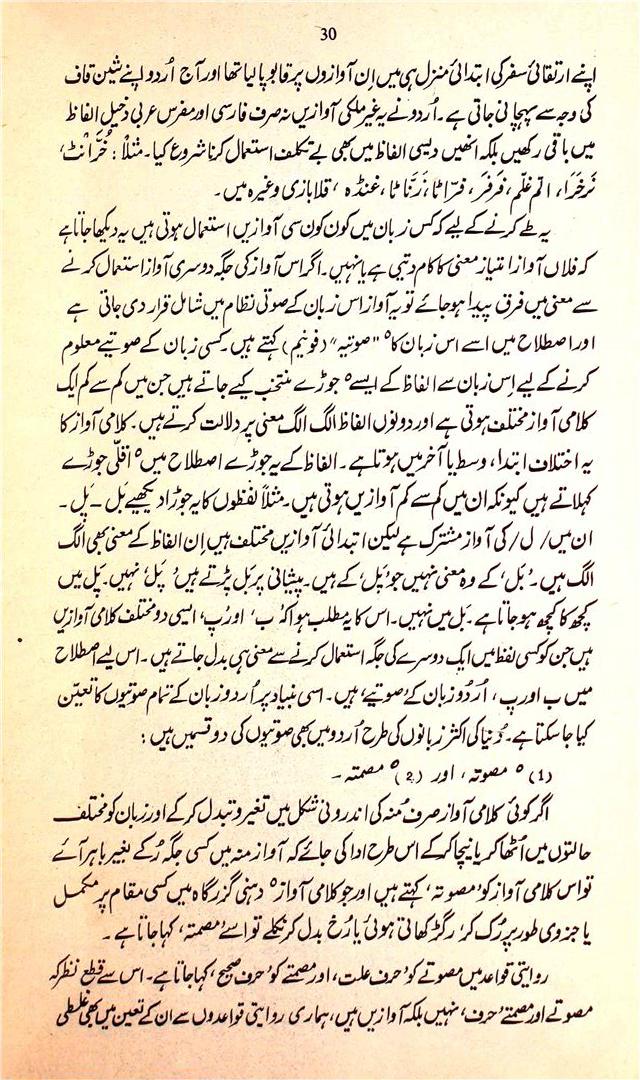 30
اپنے ارتقائی سفر کی ابتدائی منزل ہی میں اِن آوازوں پر قابو پا لیا تھا اور آج اُردو اپنے شین قاف
کی وجہ سے پہچانی جاتی ہے۔ اُردو نے یہ غیر ملکی آوازیں نہ صرف فارسی اور مفرس عربی دخیل الفاظ
میں باقی رکھیں بلکہ انھیں دیسی الفاظ میں بھی بے تکلف استعمال کرنا شروع کیا۔ مثلاً: خُرّانٹ،
نَرخَرا، الم غلم، فَرفَر، فرّاٹا، زنّاٹا، غنڈہ، قلابازی وغیرہ میں۔
یہ طے کرنے کے لیے کہ کس زبان میں کون کون سی آوازیں استعمال ہوتی ہیں یہ دیکھا جاتا ہے
کہ فلاں آواز امتیازِ معنی کا کام دیتی ہے یا نہیں۔ اگر اس آواز کی جگہ دوسری آواز استعمال کرنے
سے معنی میں فرق پیدا ہو جائے تو یہ آواز اس زبان کے صوتی نظام میں شامل قرار دی جاتی ہے
اور اصطلاح میں اسے اس زبان کا ° "صوتیہ" (فونیم) کہتے ہیں۔ کسی زبان کے صوتیے معلوم
کرنے کے لیے اِس زبان سے الفاظ کے ایسے ° جوڑے منتخب کیے جاتے ہیں جن میں کم سے کم ایک
کلامی آواز مختلف ہوتی ہے اور دونوں الفاظ الگ الگ معنی پر دلالت کرتے ہیں۔ کلامی آواز کا
یہ اختلاف ابتدا، وسط یا آخر میں ہوتا ہے۔ الفاظ کے یہ جوڑے اصطلاح میں ° اقلّی جوڑے
کہلاتے ہیں کیونکہ ان میں کم سے کم آوازیں ہوتی ہیں۔ مثلاً لفظوں کا یہ جوڑا دیکھیے بَل ۔ پَل ۔
ان میں / ل / کی آواز مشترک ہے لیکن ابتدائی آوازیں مختلف ہیں اِن الفاظ کے معنی بھی الگ
الگ ہیں۔ 'بَل' کے وہ معنی نہیں جو 'پَل' کے ہیں۔ پیشانی پر بَل پڑتے ہیں 'پَل' نہیں۔ پَل میں
کچھ کا کچھ ہو جاتا ہے۔ بَل میں نہیں۔ اس کا یہ مطلب ہوا کہ 'ب' اور 'پ' ایسی دو مختلف کلامی آوازیں
ہیں جن کو کسی لفظ میں ایک دوسرے کی جگہ استعمال کرنے سے معنی ہی بدل جاتے ہیں۔ اس لیے اصطلاح
میں ب اور پ، اُردو زبان کے صوتیے ہیں۔ اسی بنیاد پر اُردو زبان کے تمام صوتیوں کا تعیّن
کیا جا سکتا ہے۔ دُنیا کی اکثر زبانوں کی طرح اُردو میں بھی صوتیوں کی دو قسمیں ہیں:
(1) ° مصوتہ، اور (2) ° مصمتہ ۔
اگر کوئی کلامی آواز صرف مُنہ کی اندرونی شکل میں تغیر و تبدل کر کے اور زبان کو مختلف
حالتوں میں اُٹھا کر یا نیچا کر کے اس طرح ادا کی جائے کہ آواز منہ میں کسی جگہ رُکے بغیر باہر آئے
تو اس کلامی آواز کو 'مصوتہ' کہتے ہیں اور جو کلامی آواز ° دہنی گزرگاہ میں کسی مقام پر مکمل
یا جزوی طور پر رُک کر، رگڑ کھاتی ہوئی یا رُخ بدل کر نکلے تو اسے 'مصمتہ' کہا جاتا ہے۔
روایتی قواعد میں مصوتے کو 'حرف علت' اور مصمتے کو 'حرف صحیح' کہا جاتا ہے۔ اس سے قطع نظر کہ
مصوتے اور مصمتے 'حرف' نہیں بلکہ آوازیں ہیں، ہماری روایتی قواعدوں سے ان کے تعین میں بھی غلطی